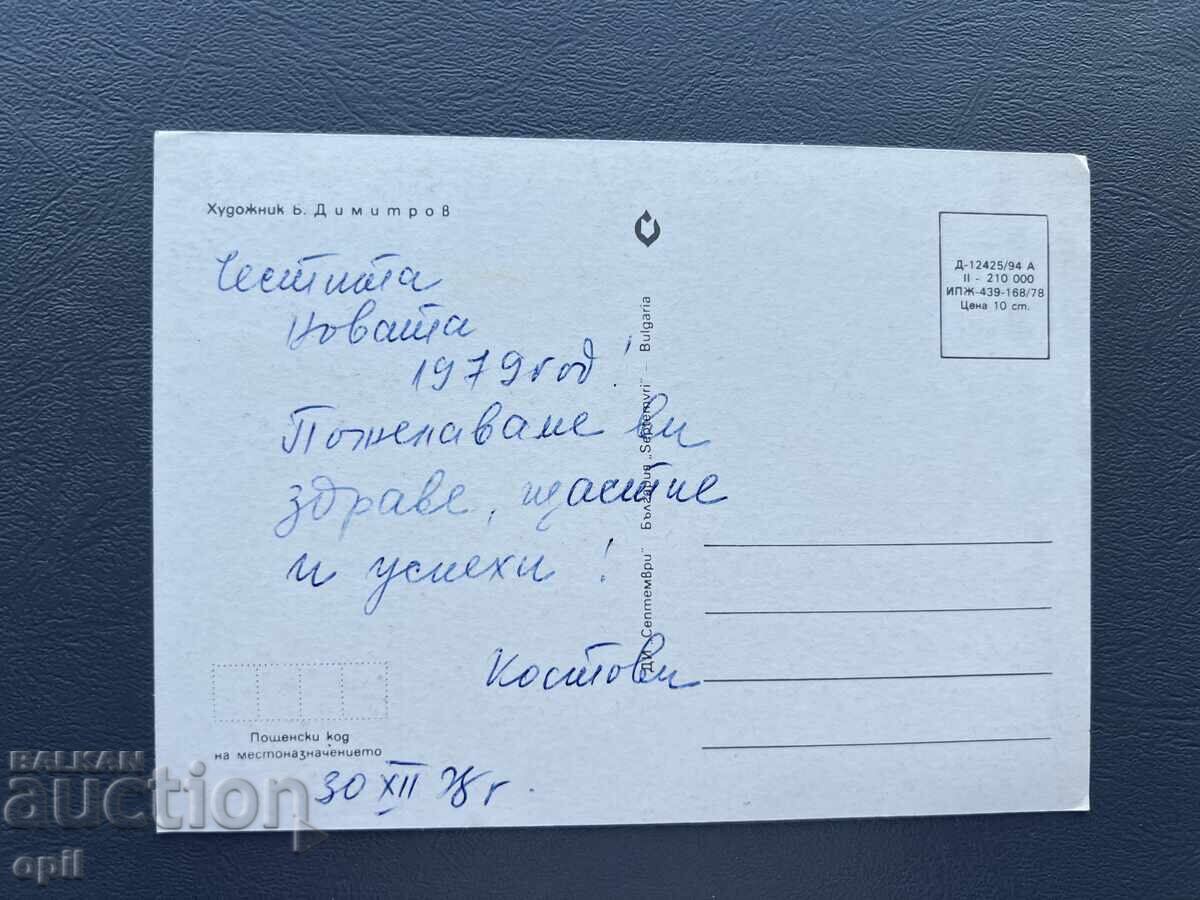 Художник Б. Димитров
Честита
Новата
1979 год!
Пожелаваме ви
здраве, щастие
и успехи!
Костови
Пощенски код
на местоназначението
30 XII 78 г.
ДИ „Септември" България „Septemvri" – Bulgaria
Д-12425/94 А
II - 210 000
ИПЖ-439-168/78
Цена 10 ст.
BALKAN
auction
opil